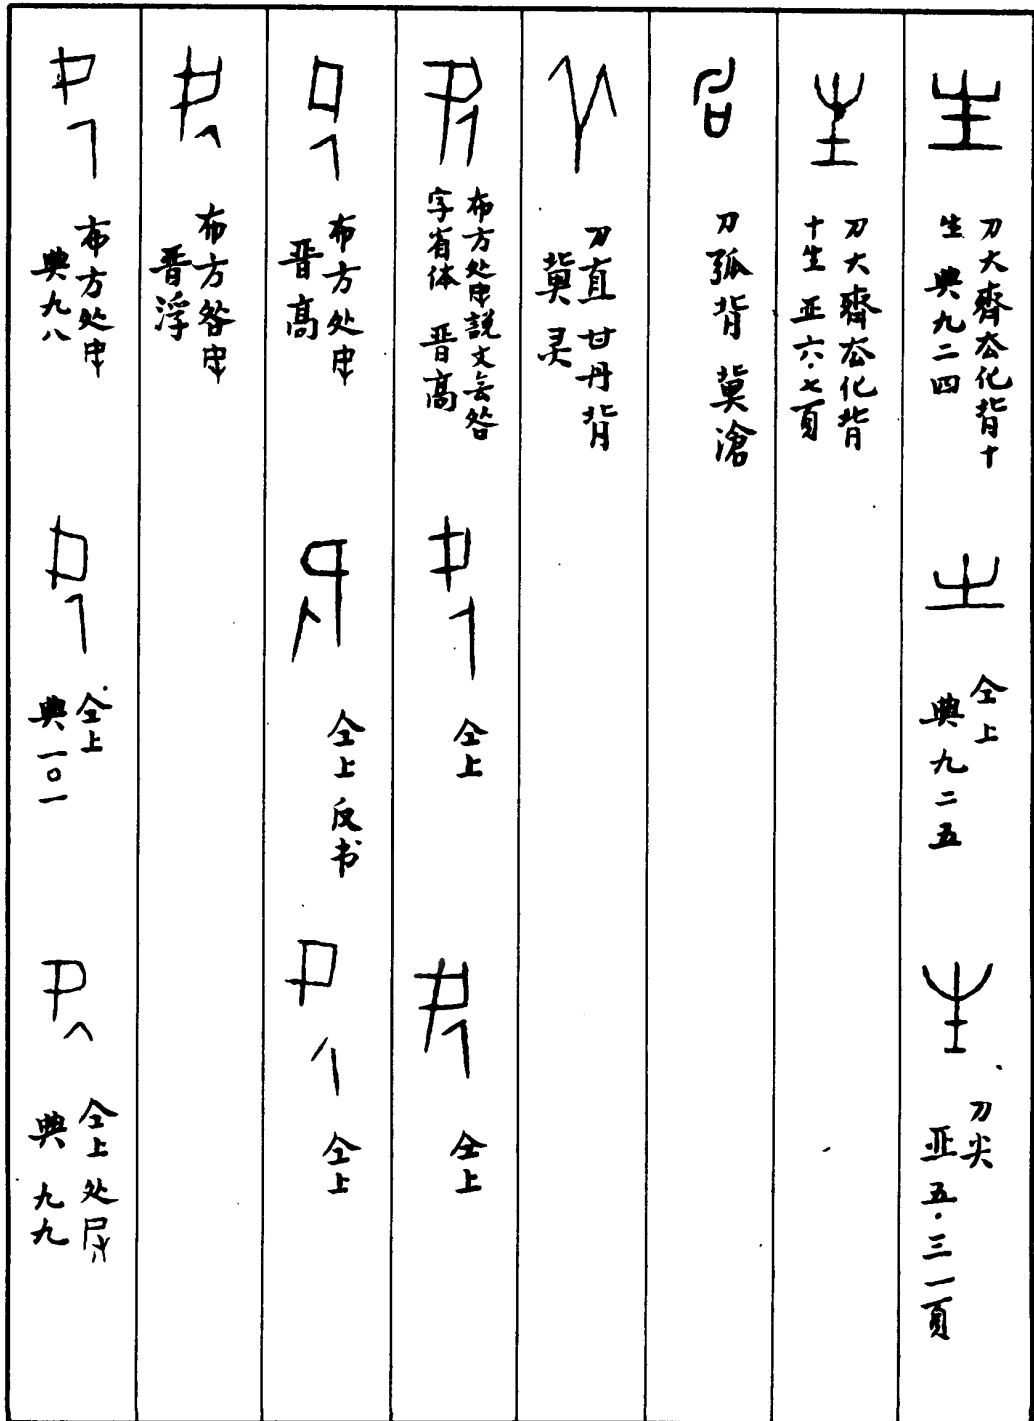 刀大齊厺化背十
生 典九二四
仝上
典九二五
刀尖
亚五·三一頁
刀大齊厺化背
十生 亚六·七頁
刀弧背 冀滄
刀直甘丹背
冀灵
布方处
説文无咎
字省体 晋高
仝上
仝上
布方处
晋高
仝上反书
仝上
布方咎
晋浮
布方处
典九八
仝上
典一〇一
仝上处
典九九